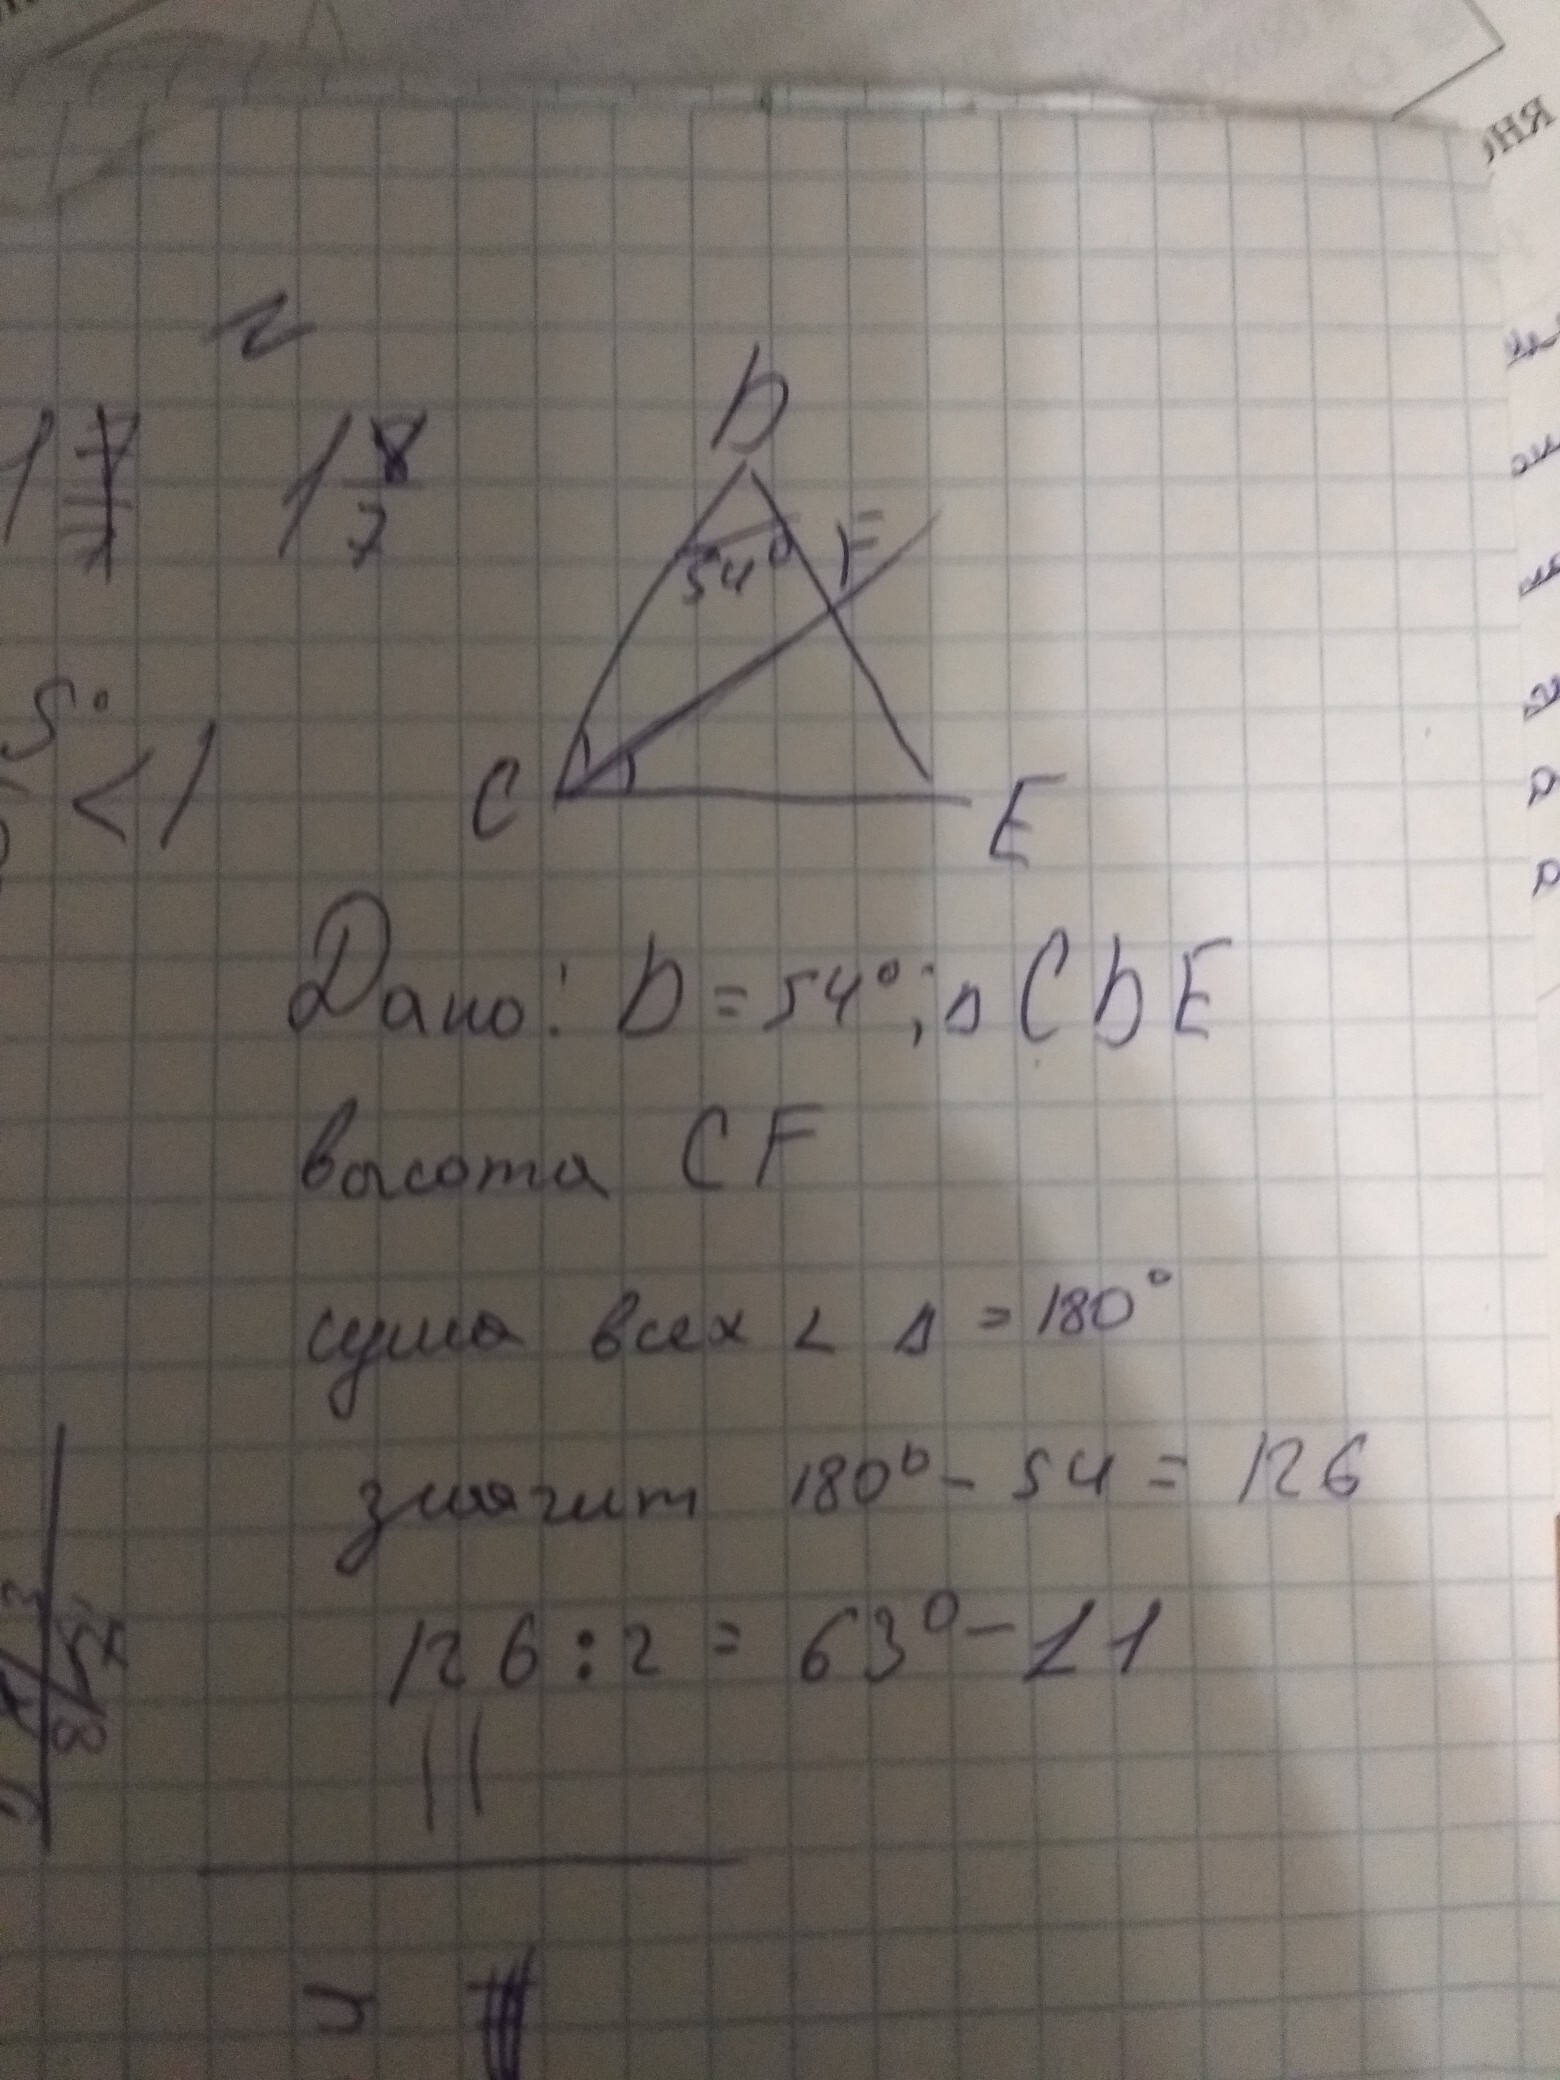 D
54°
F
C
E
1 8/7
5°
< 1
Дано: D = 54°; △ CDE
высота CF
сума всех < △ = 180°
значит 180° - 54 = 126
126 : 2 = 63° -